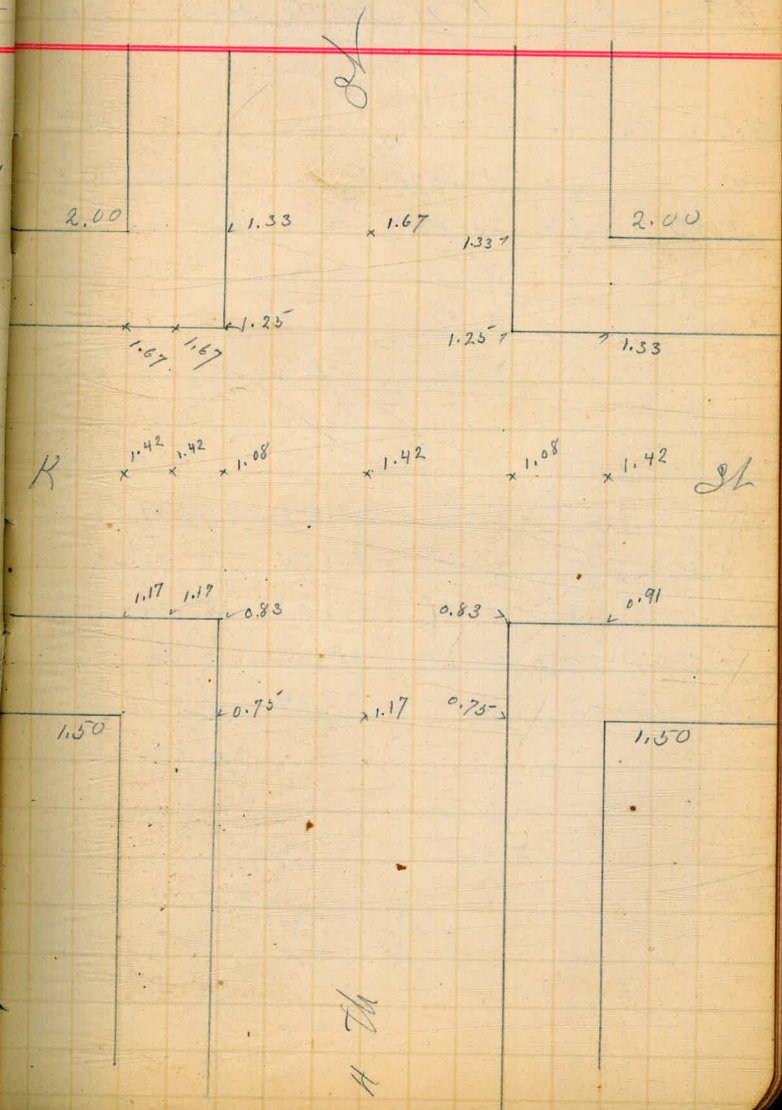 St
2.00 1.33 1.67 1.33 2.00
1.67 1.67 1.25 1.25 1.33
K 1.42 1.42 1.08 1.42 1.08 1.42 St
1.17 1.17 0.83 0.83 0.91
1.50 0.75 1.17 0.75 1.50
4 th